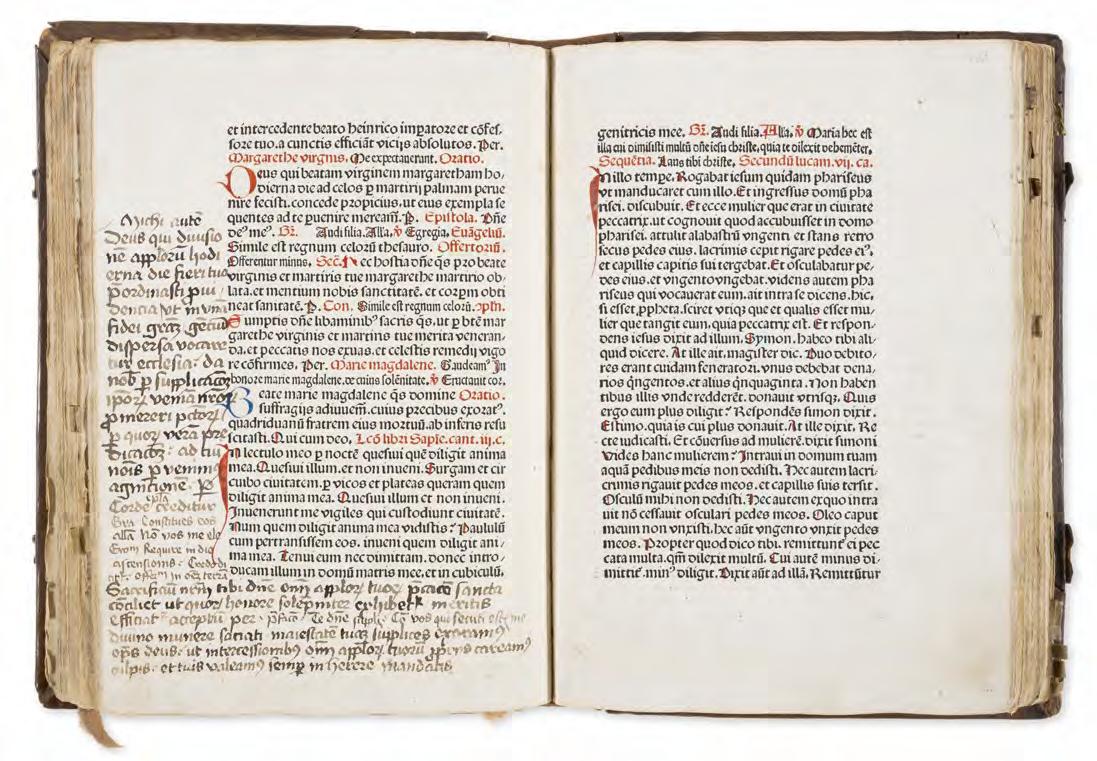 et intercedente beato heinrico imꝑatore et cõfeſ⸗
ſore tuo. a cunctis efficiãt vicijs abſolutos. Per.
Margarethe virgnis. Me expectauerunt. Oratio.
Deus qui beatam virginem margaretham ho⸗
dierna die ad celos ꝑ martirij palmam perue
nire feciſti. concede propicius. ut eius exempla ſe
quentes ad te ꝑuenire meream̃. P. Epiſtola. Dñe
deꝰ meꝰ. Gr̃. Audi filia. Alla. ℣ Egregia. Euãgeliũ.
Simile eſt regnum celorũ theſauro. Offertoriũ.
Offerentur minus. Sec̃. Hec hoſtia dñe q̃s pro beate
virginis et martiris tue margarethe martirio ob⸗
lata. et mentium nobis ſanctitatẽ. et corꝑm obti
neat ſanitatẽ. P. Con. Simile eſt regnum celorũ. ↄpln̄.
Sumptis dñe libaminibꝰ ſacris q̃s. ut ꝑ btẽ mar
garethe virginis et martiris tue merita veneran⸗
da. et peccatis nos exuas. et celeſtis remedij vigo
re cõfirmes. Per. Marie magdalene. Gaudeamꝰ In
honore marie magdalene. de cuius ſolẽnitate. ℣ Eructauit cor.
Beate marie magdalene q̃s domine Oratio.
ſuffragijs adiuuem̃. cuius precibus exoratꝰ.
quadriduanũ fratrem eius mortuũ. ab inferis reſu
ſcitaſti. Qui cum deo. Lcõ libri Sapie. cant. iij. c.
In lectulo meo ꝑ noctẽ queſiui quẽ diligit anima
mea. Queſiui illum. et non inueni. Surgam et cir
cuibo ciuitatem. ꝑ vicos et plateas queram quem
diligit anima mea. Queſiui illum et non inueni.
Inuenerunt me vigiles qui cuſtodiunt ciuitatẽ.
Num quem diligit anima mea vidiſtis? Paululũ
cum pertranſiſſem eos. inueni quem diligit ani⸗
ma mea. Tenui eum nec dimittam. donec intro⸗
ducam illum in domũ matris mee. et in cubiculũ.
Michi autẽ
Deus qui diuiſio
nẽ apploꝝ hodi
erna die fieri tua
ꝑordinaſti ꝓui
dentia ut in vna
fidei gentiũ
diſperſa vocare
tur eccleſia: da
nob̃ ꝑ
veniã
ꝓmereri
ꝑ quoꝝ verã pre
ad tui
nois ꝑ venim
agnitionẽ ꝑ
Corde creditur
Gra Conſtitues eos
alla Nõ vos me ele
Ewm Require in die
aſcenſionis Credo
off In oẽʒ terrã
Sacrificiũ nr̃m tibi dñe om̃ apploꝝ tuoꝝ p̃catõ ſancta
cõciliet ut quoꝝ honore ſolẽpniter exhibetr meritis
efficiat acceptũ per
diuino munere ſatiati maieſtatẽ tuaʒ ſupplices exoramꝰ
ops deus: ut interceſſionibꝰ om̃ apploꝝ tuoꝝ careamꝰ
culpis: et tuis valeamꝰ ſemꝑ in herere mandatis
genitricis mee. Gr̃. Audi filia. Alla. ℣ Maria hec eſt
illa cui dimiſiſti multũ dñe ieſu chriſte, quia te dilexit vehemẽter.
Sequẽtia. Laus tibi chriſte. Secundũ lucam. vij. ca.
In illo tempe. Rogabat ieſum quidam phariſeus
vt manducaret cum illo. Et ingreſſus domũ pha
riſei. diſcubuit. Et ecce mulier que erat in ciuitate
peccatrix. ut cognouit quod accubuiſſet in domo
phariſei. attulit alabaſtrũ vngenti. et ſtans retro
ſecus pedes eius. lacrimis cepit rigare pedes eiꝰ.
et capillis capitis ſui tergebat. Et oſculabatur pe⸗
des eius. et vngento vngebat. videns autem pha
riſeus qui vocauerat eum. ait intra ſe dicens. hic,
ſi eſſet ꝓpheta. ſciret vtiqʒ que et qualis eſſet mu⸗
lier que tangit eum. quia peccatrix eſt. Et reſpon⸗
dens ieſus dixit ad illum. Symon. habeo tibi ali⸗
quid dicere. At ille ait. magiſter dic. Duo debito⸗
res erant cuidam feneratori. vnus debebat dena⸗
rios q̃ngentos. et alius q̃nquaginta. Non haben
tibus illis vnde redderẽt. donauit vtrisqʒ. Quis
ergo eum plus diligit? Reſpondẽs ſimon dixit.
Eſtimo. quia is cui plus donauit. At ille dixit. Re
cte iudicaſti. Et cõuerſus ad mulierẽ. dixit ſimoni
vides hanc mulierem? Intraui in domum tuam
aquã pedibus meis non dediſti. Hec autem lacri⸗
crimis rigauit pedes meos. et capillis ſuis terſit.
Oſculũ mihi non dediſti. Hec autem exquo intra
uit nõ ceſſauit oſculari pedes meos. Oleo caput
meum non vnxiſti. hec aũt vngento vnxit pedes
meos. Propter quod dico tibi. remittunt̃ ei pec
cata multa. qm̃ dilexit multũ. Cui autẽ minus di⸗
mittit̃. minꝰ diligit. Dixit aũt ad illã. Remittũtur